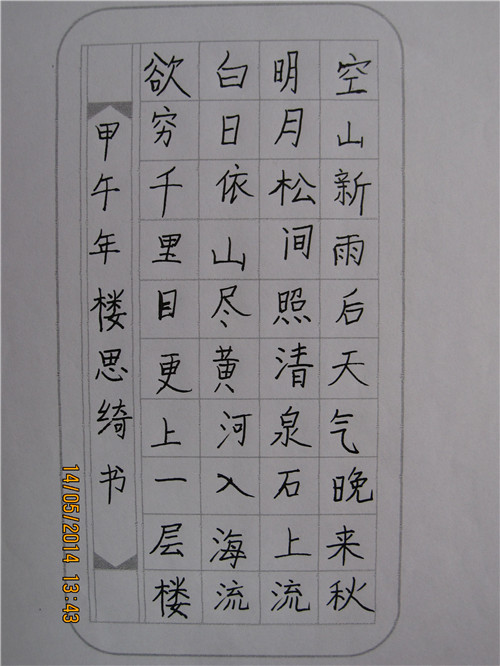 空山新雨后天气晚来秋
明月松间照清泉石上流
白日依山尽黄河入海流
欲穷千里目更上一层楼
甲午年楼思绮书
14/05/2014 13:43